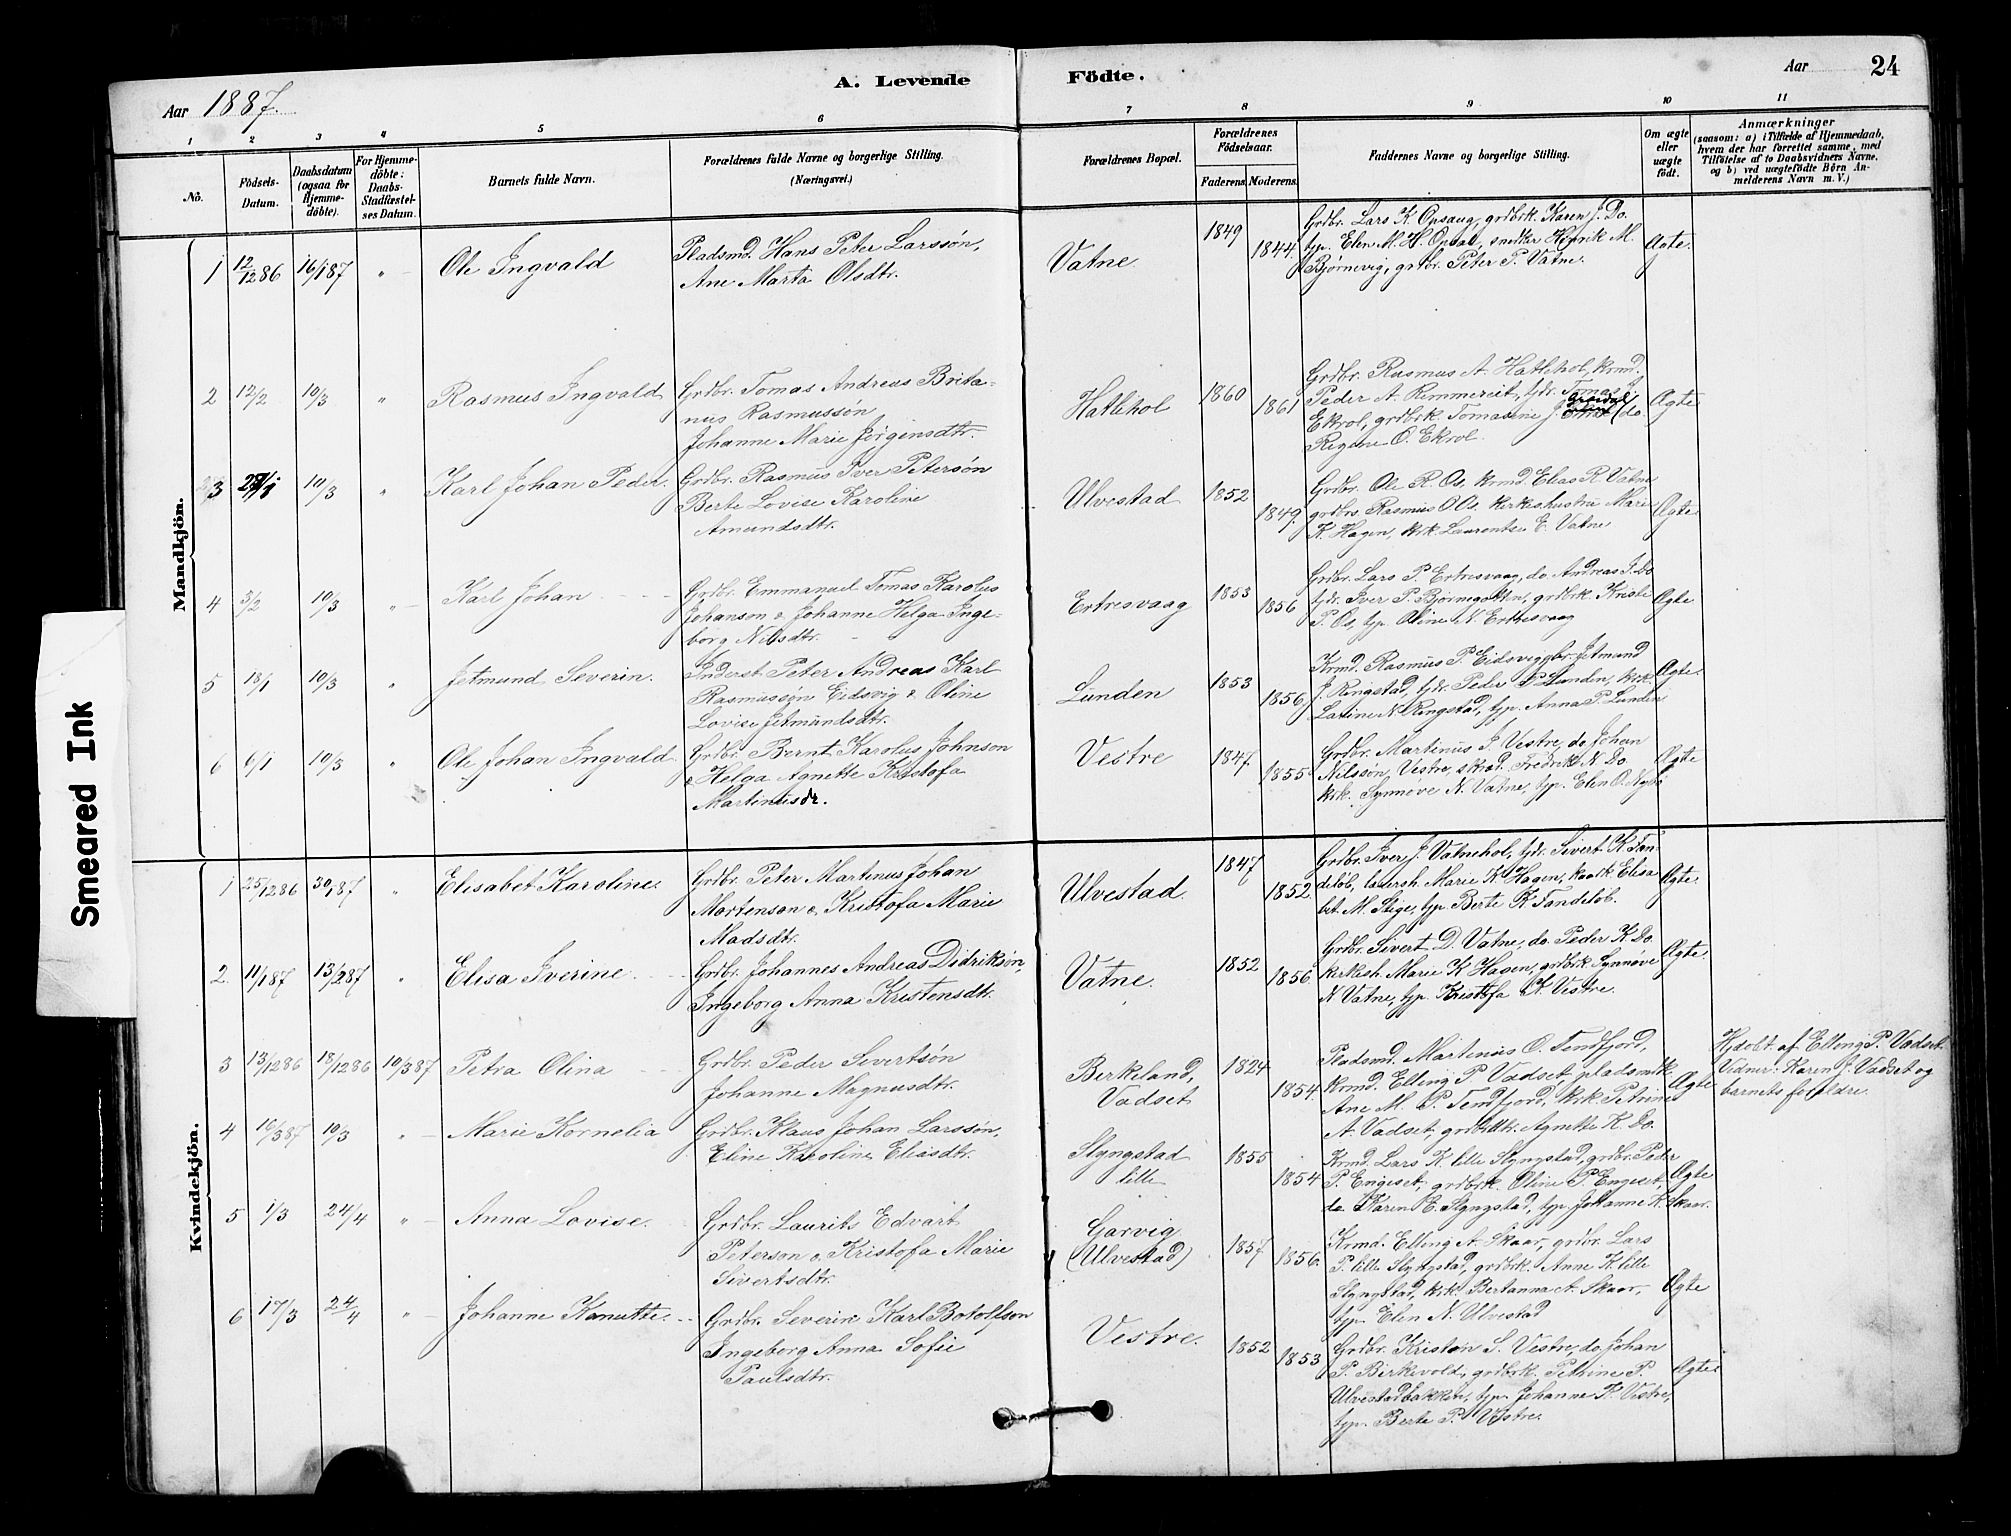 A. Levende Födte.
Aar 1887.
Aar
24
1 2 3 4 5 6 7 8 9 10 11
No.
Födsels-
Datum.
Daabsdatum
(ogsaa for
Hjemme-
döbte).
For Hjemme-
döbte:
Daabs-
Stadfæstel-
ses Datum.
Barnets fulde Navn.
Forældrenes fulde Navne og borgerlige Stilling.
(Næringsvei.)
Forældrenes Bopæl.
Forældrenes
Födselsaar.
Faderens. Moderens.
Faddernes Navne og borgerlige Stilling.
Om ægte
eller
uægte
födt.
Anmærkninger
(saasom: a) i Tilfælde af Hjemmedaab,
hvem der har forrettet samme, med
Tilföielse af to Daabsvidners Navne,
og b) ved uægtefödte Börn An-
melderens Navn m. V.)
Mandkjön.
1 12/12 86 16/1 87 " Ole Ingvald
Pladsmd. Hans Peter Larssön,
Ane Marta Olsdtr.
Vatne 1849 1844
Grdbr. Lars K. Opsaug, grdbrk. Karen J. Do.
typ. Elen M. H. Opsal, snedker Henrik M.
Bjørnevig, grdbr. Peter P. Vatne.
Ægte.
2 12/2 10/3 " Rasmus Ingvald
Grdbr. Tomas Andreas Brita-
nus Rasmussön
Johanne Marie Jørgensdtr.
Hatlehol 1860 1861
Grdbr. Rasmus A. Hatlehol, krmd.
Peder A. Remmereit, fdr. Tomas J.
Ekrol, grdbrk. Tomasine J. do.
Regine O. Ekrol.
Ægte
3 10/3 " Karl Johan Peder.
Grdbr. Rasmus Iver Petersön
Berte Lovise Karoline
Amundsdtr.
Ulvestad 1852 1849.
Grdbr. Ole R. Os, krmd. Elias R. Vatne
grdbrs. Rasmus O. Os, kirkeshustru Marie
K. Hagen, krk. Laurentse E. Vatne
Ægte
4 3/2 10/3 " Karl Johan
Grdbr. Emmanuel Tomas Karolus
Johanson & Johanne Helga Inge-
borg Nilsdtr.
Ertresvaag 1853 1856
Grdbr. Lars P. Ertresvaag, do. Andreas J. Do
fdr. Iver P. Bjørngotten, grdbrk. Kriste
P. Os, typ. Oline N. Ertresvaag
Ægte
5 18/1 10/3 " Jetmund Severin.
Inderst Peter Andreas Karl
Rasmussøn Eidsvig & Oline
Lovise Jetmundsdtr.
Lunden 1853 1856
Krmd. Rasmus P. Eidsvig, gbr. Jetmund
J. Ringstad, fdr. Peder P. Lunden, krk.
Latine N. Ringstad, typ. Anna P. Lunden
Ægte.
6 6/1 10/3 " Ole Johan Ingvald
Grdbr. Bernt Karolus Johnson
& Helga Agnette Kristofa
Martinusdr.
Vestre 1847 1855
Grdbr. Martinus J. Vestre, do. Johan
Nilssön Vestre, skrad. Fredrik N. Do.
krk. Synnøve N. Vatne, typ. Elen O.
Ægte
Kvindekjön.
1 25/12 86 30/1 87 " Elisabet Karoline.
Grdbr. Peter Martinus Johan
Mortenson & Kristofa Marie
Madsdtr.
Ulvestad. 1847 1852
Grdbr. Iver J. Vatnehol, fdr. Sivert K. Tan-
deløb, Marie K. Hagen, Elisa
bet M. Stige, typ. Berte K. Tandeløb.
Ægte.
2 11/1 87 13/2 87 " Elisa Iverine.
Grdbr. Johannes Andreas Didriksøn,
Ingeborg Anna Kristensdtr.
Vatne. 1852 1856
Grdbr. Sivert D. Vatne, do. Peder K. Do.
kirkesh. Marie K. Hagen, grdbrk. Synnøve
N. Vatne, typ. Kristofa K. Vestre.
Ægte.
3 13/12 86 18/12 86 10/3 87 Petra Olina
Grdbr. Peder Sivertsön
Johanne Magnusdtr.
Berkeland,
Vadset 1824 1854.
Pladsmd. Martinus O. Tenfjord,
krmd. Elling P. Vadset, pladsmdk.
Ane M. P. Tenfjord, krk. Petrine
A. Vadset, grdbrdtr. Agnette K. Do.
Ægte
Hjdøbt. af Elling P. Vadset.
Vidner: Karen J. Vadset og
barnets forældre.
4 10/3 87 10/3 " Marie Kornelia
Grdbr. Klaus Johan Larssön,
Eline Karoline Eliasdtr.
Slyngstad
lille 1855 1854
Krmd. Lars K. lille Slyngstad, grdbr. Peder
P. Engeset, grdbrk. Oline P. Engeset,
do. Karen E. Slyngstad, typ. Johanne K. Skaar.
Ægte
5 1/3 24/4 " Anna Lovise.
Grdbr. Laurits Edvart
Peterson & Kristofa Marie
Sivertsdtr.
Garvig
(Ulvestad) 1857 1856.
Krmd. Elling A. Skaar, grdbr. Lars
P. lille Slyngstad, grdbrk. Anne K. lille
Slyngstad, krk. Bertanna A. Skaar,
typ. Elen N. Ulvestad
Ægte
6 17/3 24/4 " Johanne Kanutte.
Grdbr. Severin Karl Botolfson
Ingeborg Anna Sofie
Paulsdtr.
Vestre. 1852 1853
Grdbr. Kristen S. Vestre, do. Johan
P. Birkevold, grdbrk. Pethine P.
Ulvestadbakken, typ. Johanne K. Vestre,
typ. Berte P. Vestre.
Ægte
Smeared Ink